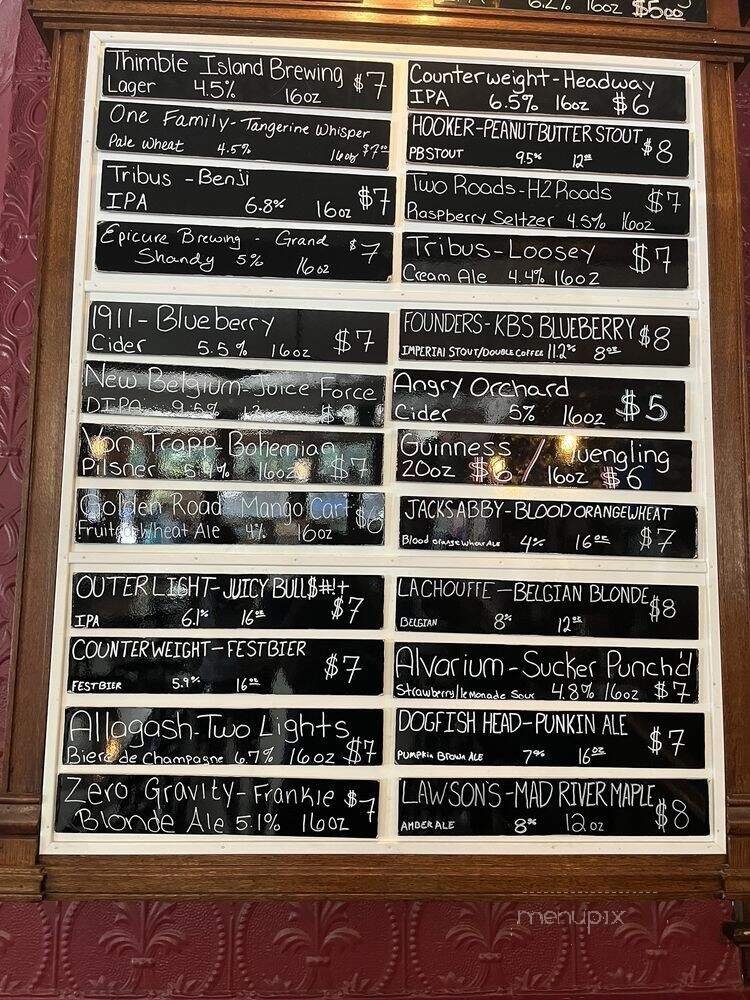 6.2% 16oz $5.00
Thimble Island Brewing $7
Lager 4.5% 16oz
One Family - Tangerine Whisper
Pale Wheat 4.5% 16oz $7.00
Tribus - Benji
IPA 6.8% 16oz $7
Epicure Brewing - Grand $7
Shandy 5% 16oz
1911 - Blueberry
Cider 5.5% 16oz $7
New Belgium - Juice Force
DIPA 9.5%
Von Trapp - Bohemian
Pilsner 5.4% 16oz $7
Golden Road Mango Cart $6
Fruited Wheat Ale 4% 16oz
OUTER LIGHT - JUICY BULL$#!+
IPA 6.1% 16oz $7
COUNTER WEIGHT - FESTBIER
FESTBIER 5.9% 16oz $7
Allagash - Two Lights
Biere de Champagne 6.7% 16oz $7
Zero Gravity - Frankie $7
Blonde Ale 5.1% 16oz
Counterweight - Headway
IPA 6.5% 16oz $6
HOOKER - PEANUT BUTTER STOUT $8
PB STOUT 9.5% 12oz
Two Roads - H2Roads $7
Raspberry Seltzer 4.5% 16oz
Tribus - Loosey $7
Cream Ale 4.4% 16oz
FOUNDERS - KBS BLUEBERRY $8
IMPERIAL STOUT/DOUBLE COFFEE 11.2% 8oz
Angry Orchard
Cider 5% 16oz $5
Guinness / Yuengling
20oz $6 16oz $6
JACKS ABBY - BLOOD ORANGE WHEAT
Blood Orange Wheat Ale 4% 16oz $7
LA CHOUFFE - BELGIAN BLONDE $8
BELGIAN 8% 12oz
Alvarium - Sucker Punch'd
Strawberry/lemonade Sour 4.8% 16oz $7
DOGFISH HEAD - PUNKIN ALE
PUMPKIN BROWN ALE 7% 16oz $7
LAWSON'S - MAD RIVER MAPLE $8
AMBER ALE 8% 12oz
menupix